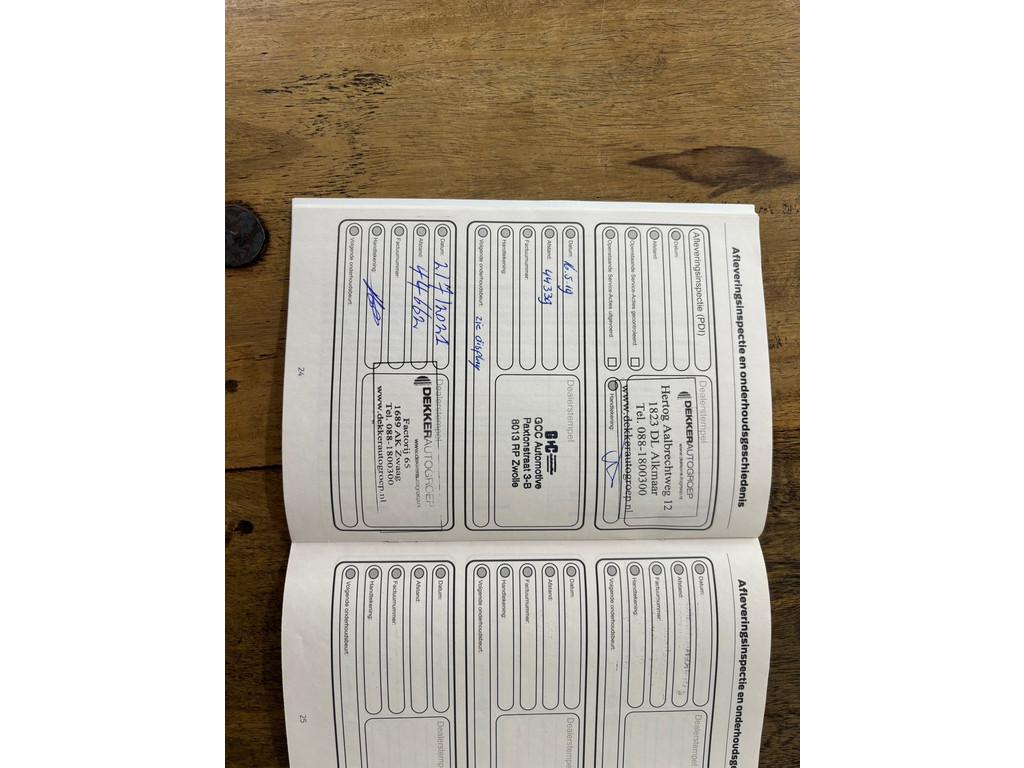 Afleveringsinspectie en onderhoudsgeschiedenis
Afleveringsinspectie (PDI)
Datum:
Afstand:
Openstaande Service-Acties gecontroleerd:
Openstaande Service-Acties uitgevoerd:
Dealerstempel
DEKKERAUTOGROEP
www.dekkerautogroep.nl
Hertog Aalbrechtweg 12
1823 DL Alkmaar
Tel. 088-1800300
www.dekkerautogroep.nl
Handtekening:
Datum: 16.5.19
Afstand: 44339
Factuurnummer:
Handtekening:
Volgende onderhoudsbeurt: zie display
Dealerstempel
GCC Automotive
Paxtonstraat 3-B
8013 RP Zwolle
Datum: 2/7/2021
Afstand: 44662
Factuurnummer:
Handtekening:
Volgende onderhoudsbeurt:
Dealerstempel
DEKKERAUTOGROEP
www.dekkerautogroep.nl
Factorij 65
1689 AK Zwaag
Tel. 088-1800300
www.dekkerautogroep.nl
24
Afleveringsinspectie en onderhoudsge
Datum:
Afstand:
Factuurnummer:
Handtekening:
Volgende onderhoudsbeurt:
Dealerstempel
Datum:
Afstand:
Factuurnummer:
Handtekening:
Volgende onderhoudsbeurt:
Dealerstempel
Datum:
Afstand:
Factuurnummer:
Handtekening:
Volgende onderhoudsbeurt:
Dealerstempel
25